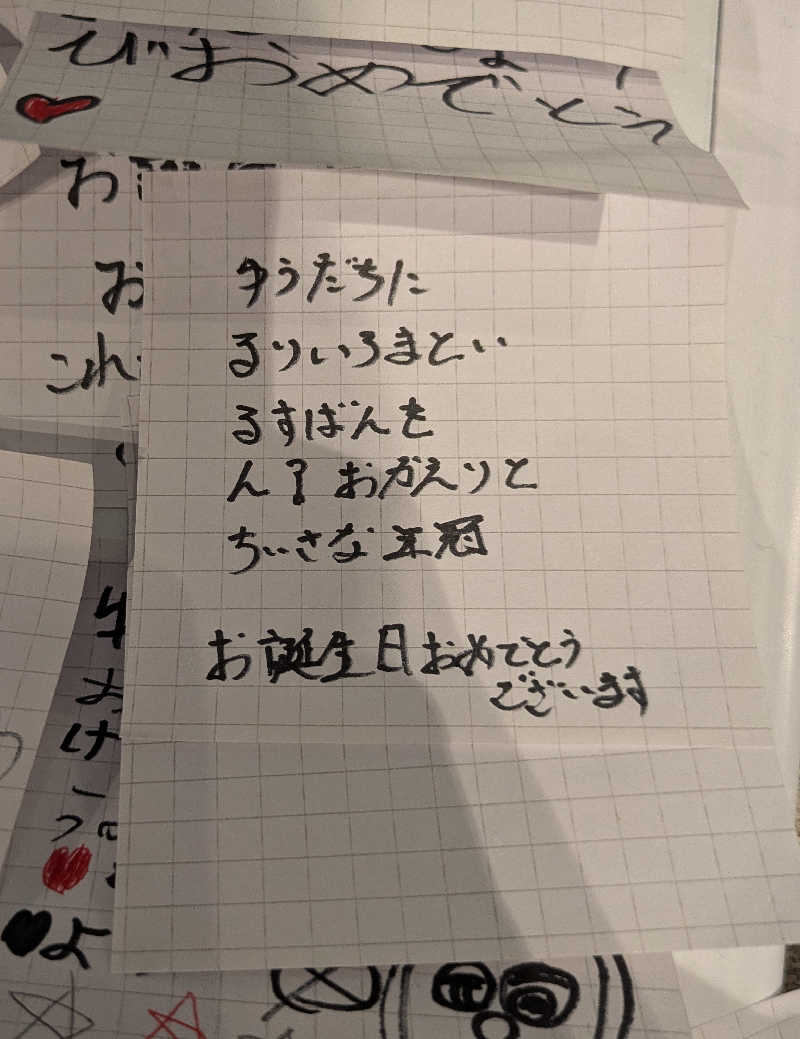 びょうおめでとう
お
お
これ
ゆうだちに
るりいろまとい
るすばんを
ん？おかえりと
ちいさな王冠
お誕生日おめでとう
でございます
け
よ